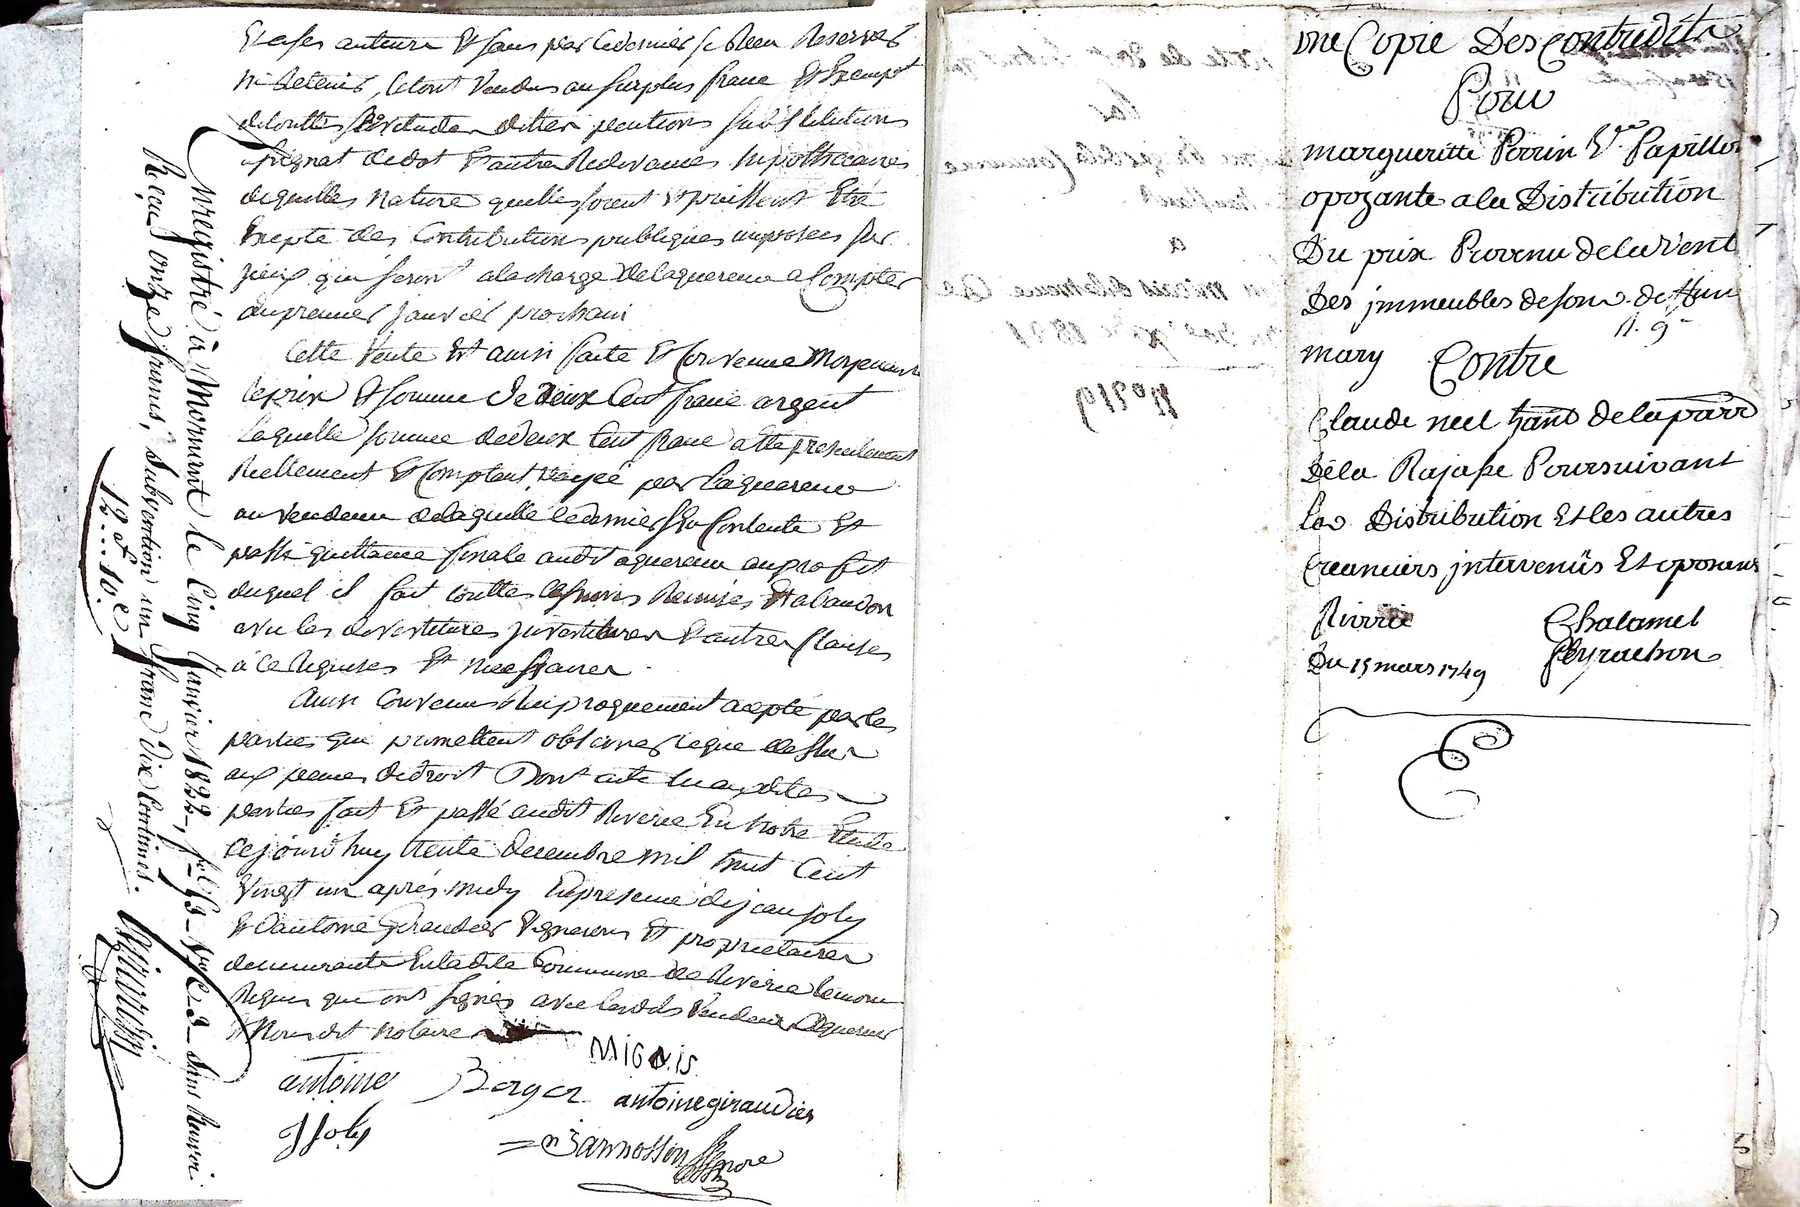 Et a ses auteurs Et sans par ce dernier se Rien Reserver
Ni Retenir, le tout vendu au surplus franc Et Exempt
de touttes servitudes dettes pentions substitutions
assignat de dot Et autres Redevances hipothécaires
de quelles Nature quelles soient Et puissent Etre
Excepté des Contributions publiques imposées sur
iceux qui seront a la charge de laquereur a Compter
du premier janvier prochain
Cette vente Est ainsi faite Et Convenue Moyenant
le prix Et somme de deux Cent franc argent
laquelle somme de deux Cent franc a été presentement
Reellement Et Comptant payée par laquereur
au vendeur de laquelle le dernier sen Contente Et
passe quittance finale audit aquereur au profit
duquel il fait touttes Cessions Remises Et abandon
avec les devestitures investitures Et autres Clauses
à ce Requises Et necessaires
Ainsi Convenu Reciproquement accepté par les
parties qui promettent observer ce que dessus
aux peines de droit Dont acte lu auxdites
parties fait Et passé audit Riverie En notre Etude
Ce jourd'huy trente decembre mil huit Cent
vingt un après midy En presence de jean joly
Et d'antoine Giraudier vignerons Et proprietaires
demeurants En la dite Commune de Riverie temoins
Requis qui ont signés avec lesdits vendeur aquereur
Et Nous dit notaire
MIGNIS
antoine Berger antoine giraudier
J Joly
Jannosson
Enregistré à Mornant le Cinq Janvier 1822, f° 63 v° C. 2 sans Renvoi
Reçu onze francs, subvention un franc dix Centimes.
12 f 10 c
N° 219
une Copie Des contredits
Pour
margueritte Perrin Ve Papillon
opozante a la Distribution
Du prix Provenu de la vent
Des jmmeubles de son deffun
mary Contre
Claude neel hant de la parr
De la Rajasse Poursuivant
la Distribution Et les autres
Creanciers jntervenus Et oposans
Riverie Chatamel
Du 15 mars 1749 Peyrachon